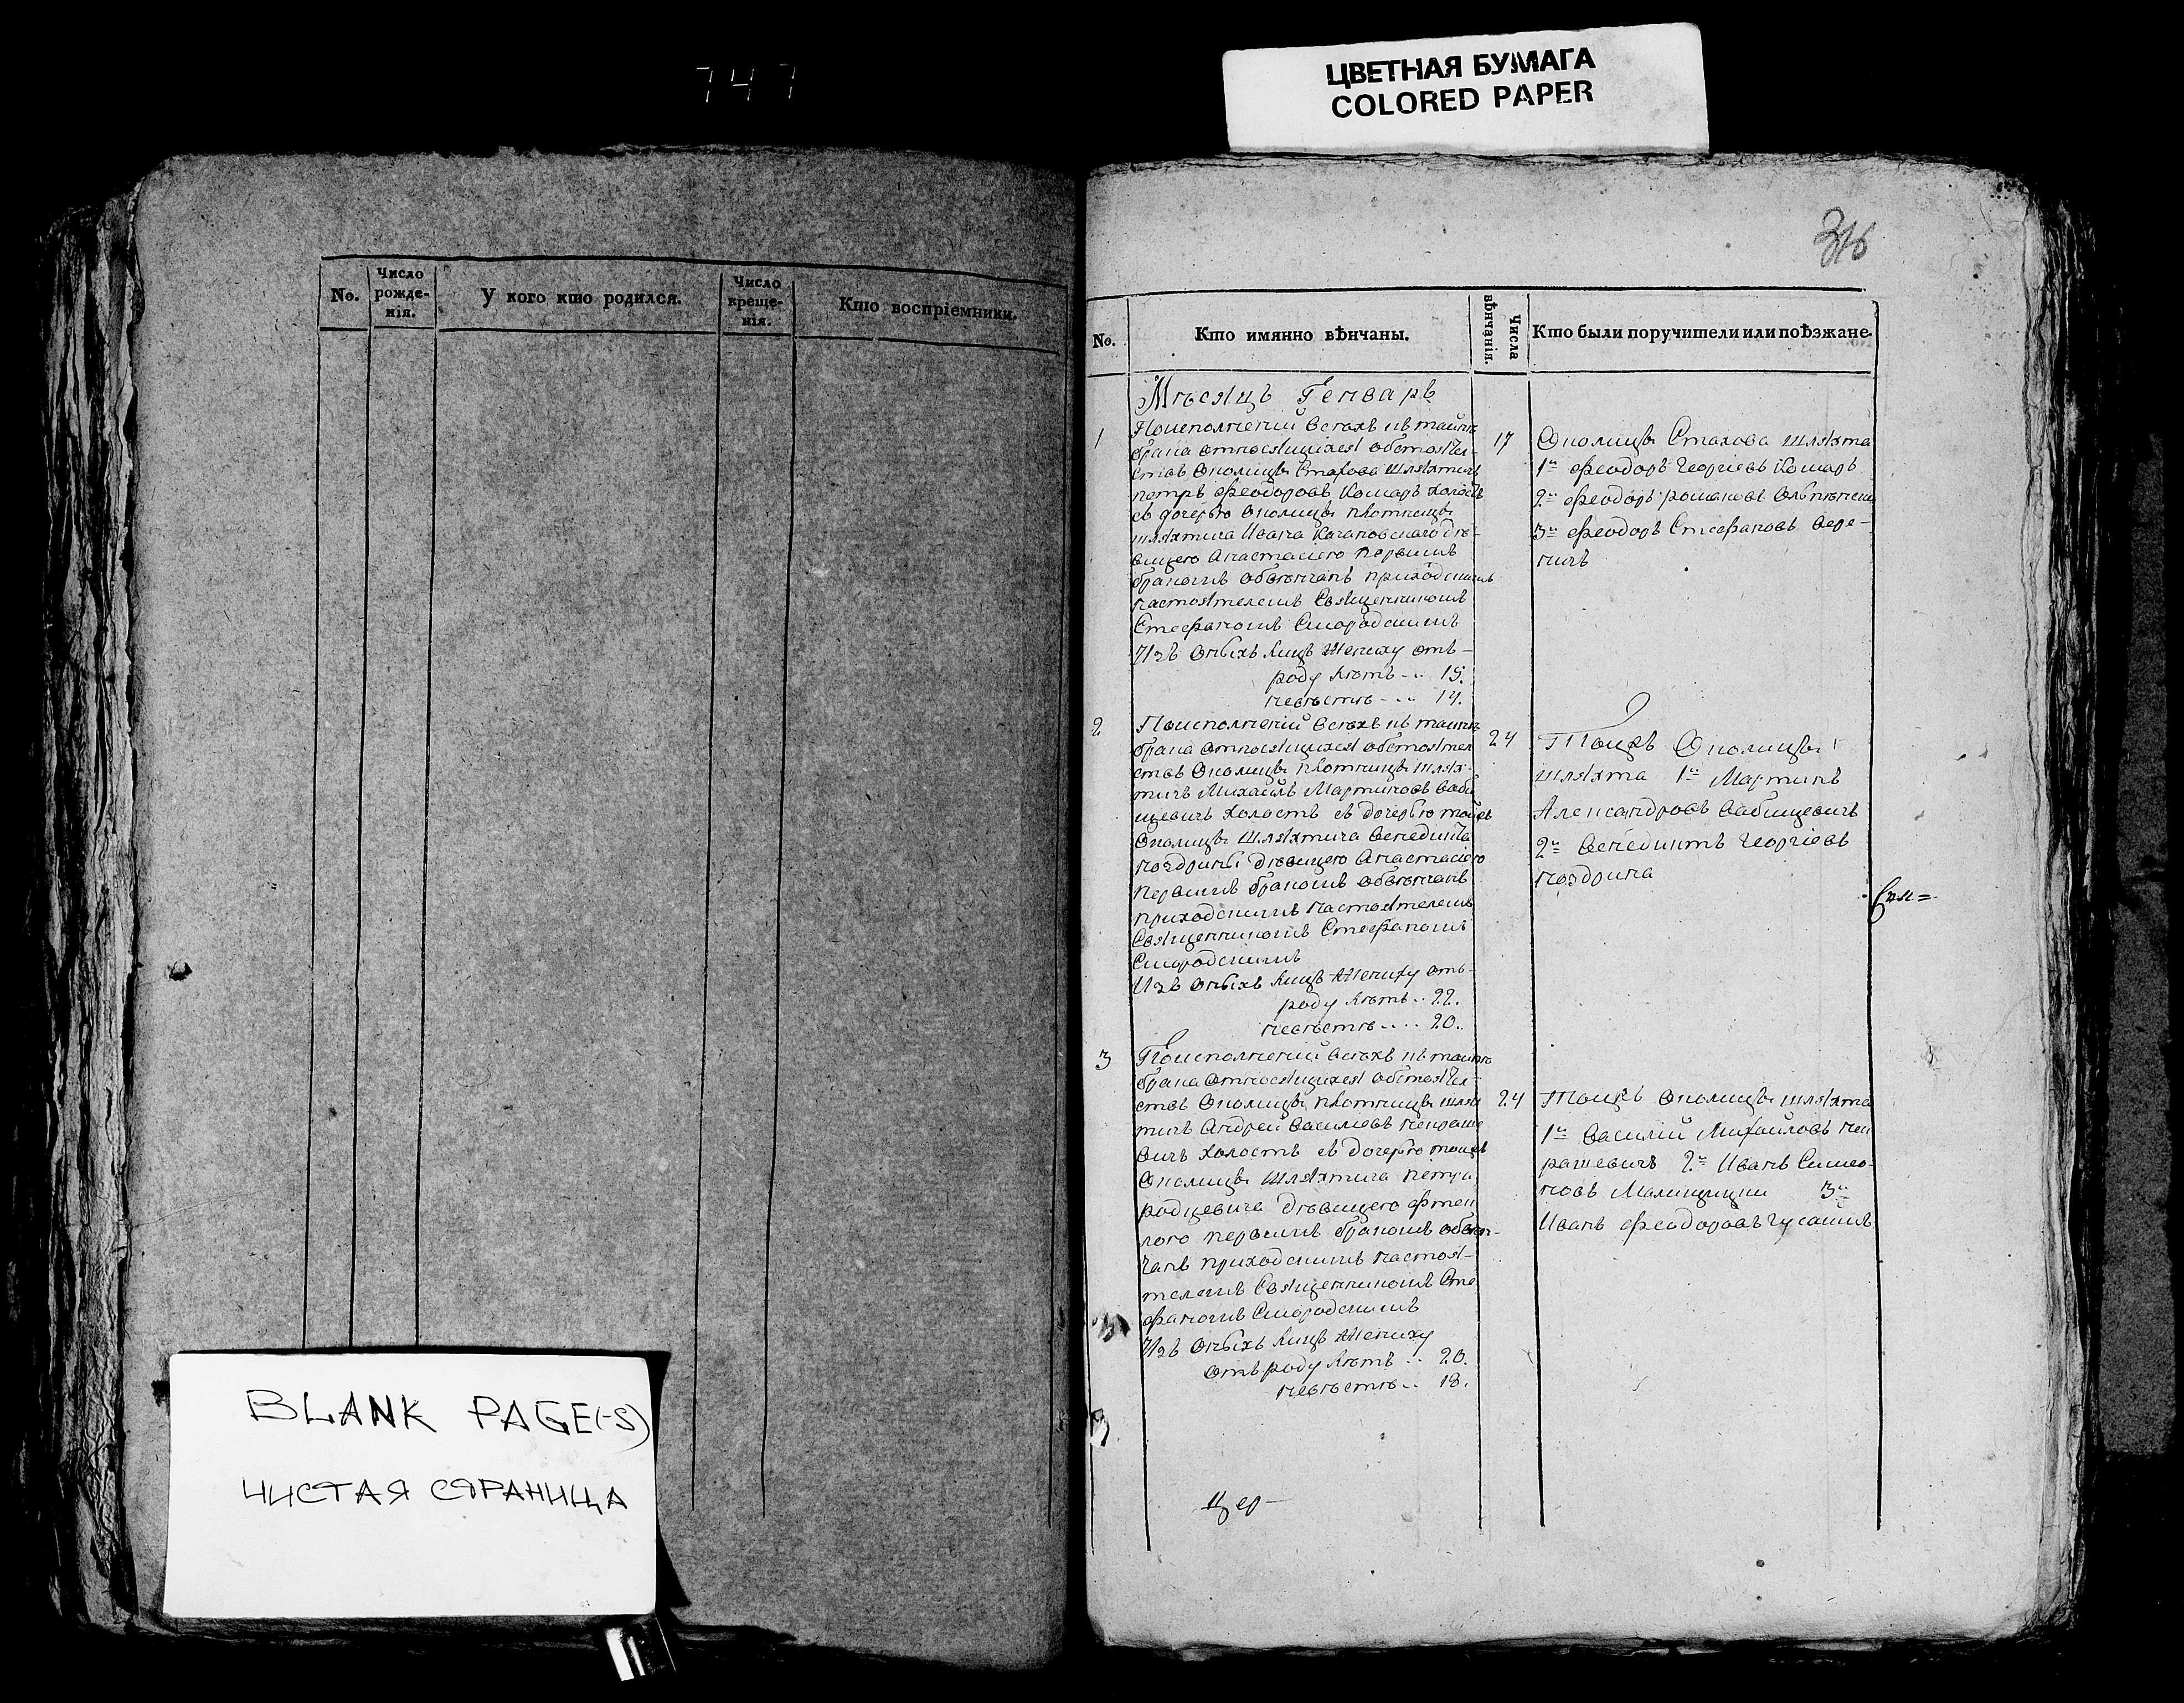 747
ЦВЕТНАЯ БУМАГА
COLORED PAPER
No.
Число рожде-нія.
У кого кто родился.
Число креще-нія.
Кто воспріемники.
BLANK PAGE(-S)
ЧИСТАЯ СТРАНИЦА
No.
Кто имянно вѣнчаны.
Числа вѣнчанія.
Кто были поручители или поѣзжане.
Мѣсяцъ Генварь
1
Поисполненіи всѣхъ къ таинѣ
брака относящихся обстоятел-
ствъ Околицы Стахова шляхтичь
петръ феодоровъ Комаръ холостъ
съ дочерью Околицы плотницы
шляхтича Ивана Качановскаго дѣ-
вицею Анастасіею первымъ
бракомъ обвѣнчанъ приходскимъ
настоятелемъ Священникомъ
Стефаномъ Смородскимъ
Изъ оныхъ лицъ жениху отъ-
роду лѣтъ .. 19.
невѣстѣ ... 14.
17
Околицы Стахова шляхта
1й феодоръ Георгіевъ Комаръ
2й феодоръ романовъ
3й феодоръ Стефановъ Вере-
ничъ
2
Поисполненіи всѣхъ къ таинѣ
брака относящихся обстоятел
ствъ Околицы плотницы шлях-
тичь Михаилъ Мартиновъ Баби
цевичь холостъ съ дочерью тойжъ
Околицы шляхтича Венедикта
ноздрины дѣвицею Анастасіею
первымъ бракомъ обвѣнчанъ
приходскимъ настоятелемъ
Священникомъ Стефаномъ
Смородскимъ
Изъ оныхъ лицъ жениху отъ-
роду лѣтъ .. 22.
невѣстѣ .... 20..
24
Тоижъ Околицы
шляхта 1й Мартинъ
Александровъ Бабицевичь
2й Венедиктъ Георгіевъ
ноздрина
3
Поисполненіи всѣхъ къ таинѣ
брака относящихся обстоятел-
ствъ Околицы плотницы шлях
тичь Андрей Василіевъ Некраше
вичь холостъ съ дочерью тоижъ
Околицы шляхтича петра
родцевича дѣвицею
первымъ бракомъ обвѣн-
чанъ приходскимъ настоя-
телемъ Священникомъ Сте
фаномъ Смородскимъ
Изъ оныхъ лицъ жениху
отъ роду лѣтъ .. 20.
невѣстѣ .. 18.
24
Тоижъ Околицы шляхта
1й Василій Михайловъ нек
рашевичь 2й Иванъ Симео-
новъ 3й
Иванъ феодоровъ